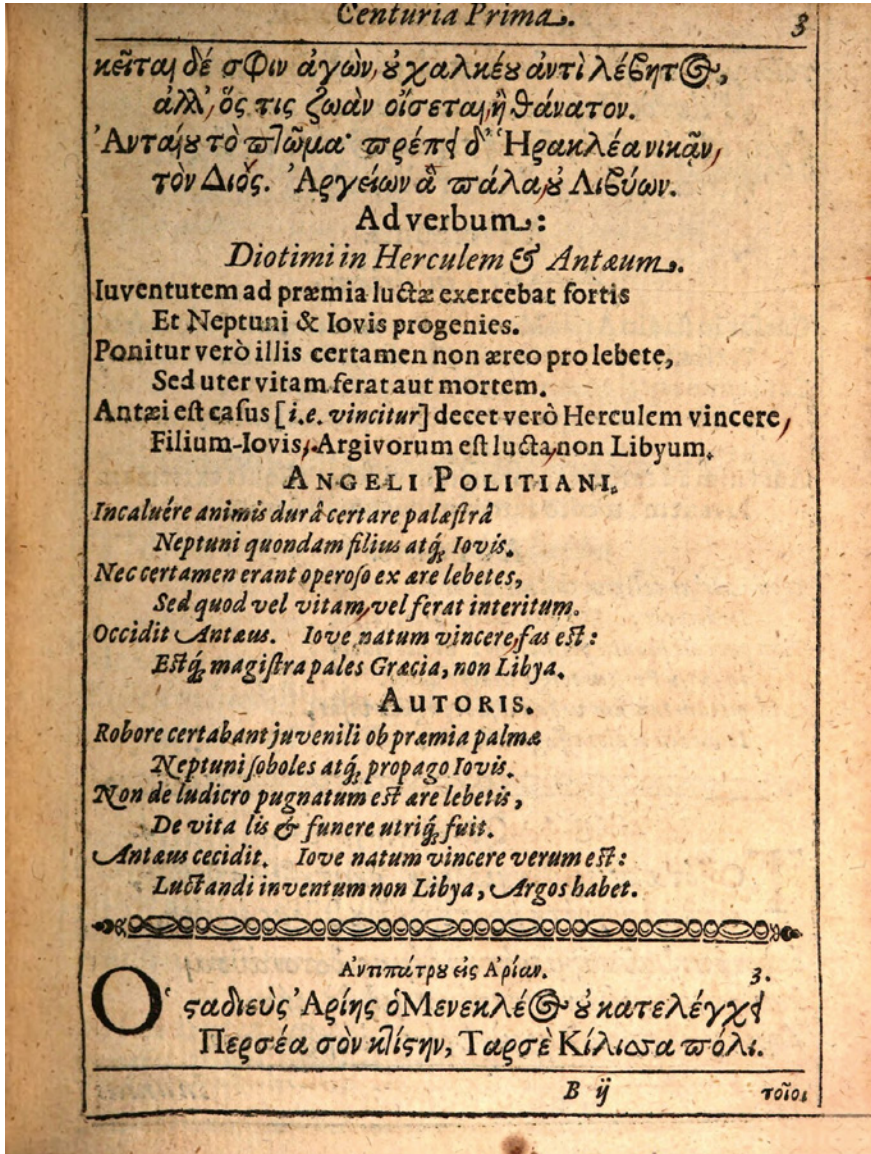 Centuria Prima.
3
κεῖται δέ σφιν ἀγὼν, ȣ χαλκέȣ ἀντὶ λέβητος,
ἀλλ', ὅς τις ζωὰν οἴσεται, ἢ θάνατον.
Ἀνταίȣ τὸ πτῶμα· πρέπει δ' Ἡρακλέα νικᾶν,
τὸν Διός. Ἀργείων ἁ πάλα, ȣ Λιβύων.
Ad verbum:
Diotimi in Herculem & Antæum.
Iuventutem ad præmia luctæ exercebat fortis
Et Neptuni & Iovis progenies.
Ponitur verò illis certamen non æreo pro lebete,
Sed uter vitam ferat aut mortem.
Antæi est casus [i.e. vincitur] decet verò Herculem vincere,
Filium-Iovis, Argivorum est lucta, non Libyum.
ANGELI POLITIANI.
Incaluére animis durâ certare palæstrâ
Neptuni quondam filius atq́; Iovis.
Nec certamen erant operoso ex ære lebetes,
Sed quod vel vitam, vel ferat interitum.
Occidit Antæus. Iove natum vincere, fas est:
Estq́; magistra pales Græcia, non Libya.
AUTORIS.
Robore certabant juvenili ob præmia palmæ
Neptuni soboles atq́; propago Iovis.
Non de ludicro pugnatum est ære lebetis,
De vita lis & funere utriq́; fuit.
Antæus cecidit. Iove natum vincere verum est:
Luctandi inventum non Libya, Argos habet.
Ἀντιπάτρȣ εἰς Ἀρίαν. 3.
Ὁ σταδιεὺς Ἀρίης ὁ Μενεκλέος ȣ κατελέγχει
Περσέα σὸν κτίστην, Ταρσὲ Κίλισσα πόλι.
B ij τοῖοι